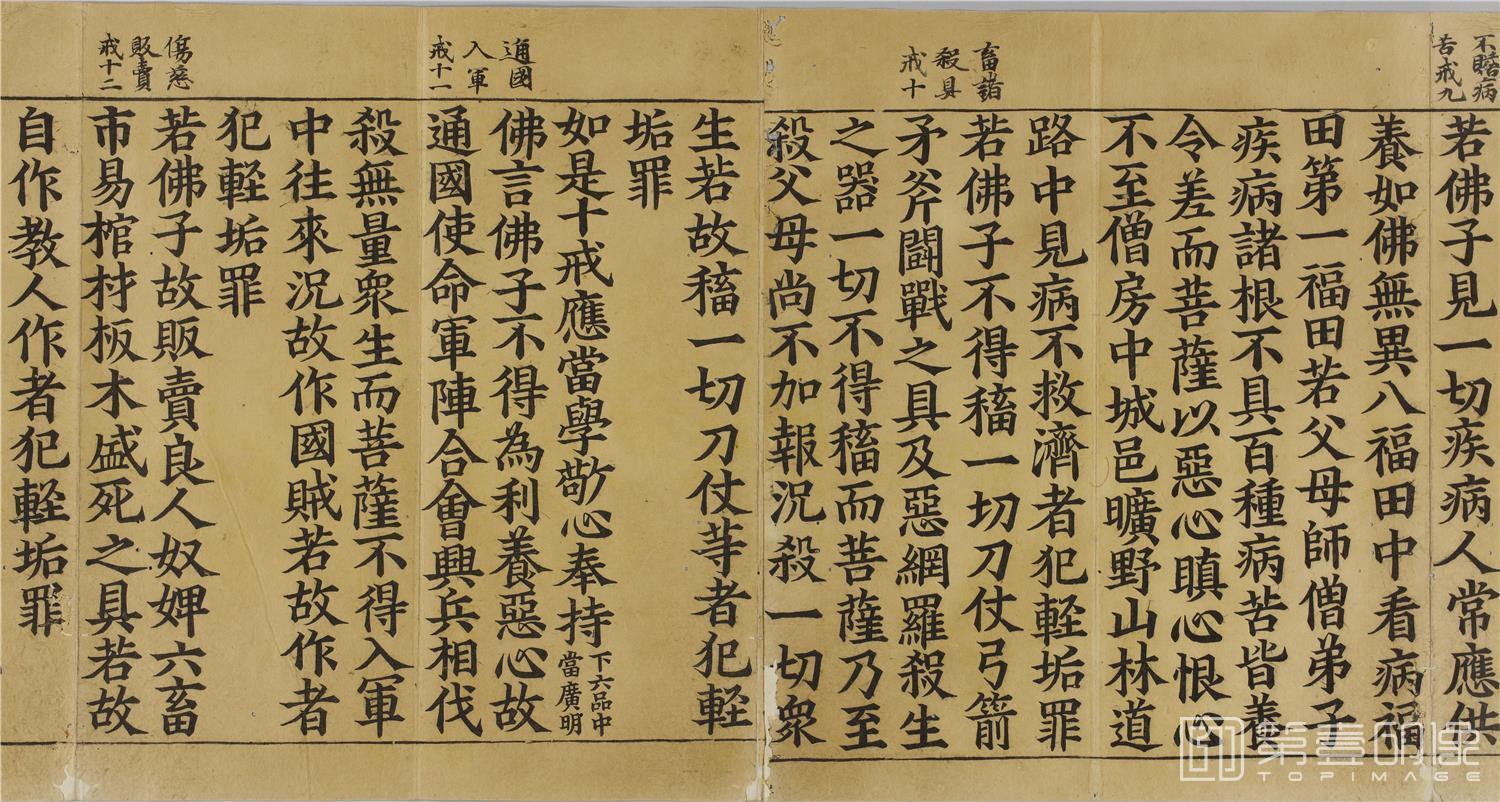 不瞻病
苦戒九
若佛子見一切疾病人常應供
養如佛無異八福田中看病福
田第一福田若父母師僧弟子
疾病諸根不具百種病苦皆養
令差而菩薩以惡心瞋心恨心
不至僧房中城邑曠野山林道
路中見病不救濟者犯輕垢罪
畜諸
殺具
戒十
若佛子不得稸一切刀仗弓箭
矛斧鬪戰之具及惡網羅殺生
之器一切不得稸而菩薩乃至
殺父母尚不加報況殺一切衆
生若故稸一切刀仗等者犯輕
垢罪
如是十戒應當學敬心奉持下六品中
當廣明
通國
入軍
戒十一
佛言佛子不得為利養惡心故
通國使命軍陣合會興兵相伐
殺無量衆生而菩薩不得入軍
中往來況故作國賊若故作者
犯輕垢罪
傷慈
販賣
戒十二
若佛子故販賣良人奴婢六畜
市易棺材板木盛死之具若故
自作教人作者犯輕垢罪
第壹映像
TOPIMAGE